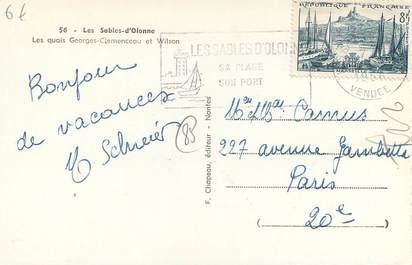 6€
56 - Les Sables-d'Olonne
Les quais Georges-Clemenceau et Wilson
LES SABLES D'OLONNE
SA PLAGE
SON PORT
REPUBLIQUE FRANÇAISE
8F
VENDÉE
Bonjour
de vacances
85
F. Chapeau, éditeur - Nantes
Camus
227 avenue Gambetta
Paris
20e